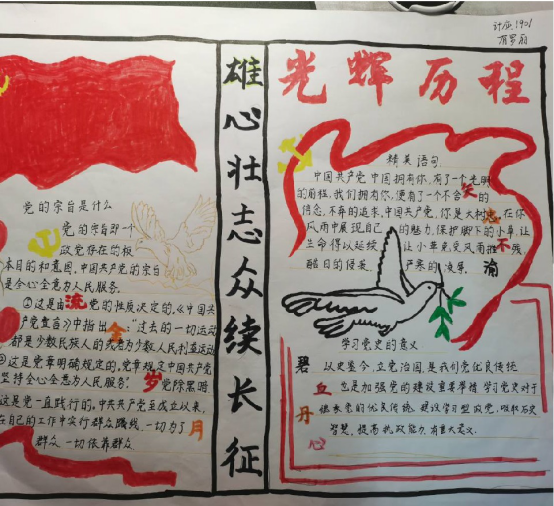 计应1901
雄心壮志众续长征
光辉历程
党的宗旨是什么
党的宗旨即一个
政党存在的根
本目的和意图。中国共产党的宗旨
是全心全意为人民服务。
①这是由 党的性质决定的。《中国共
产党宣言》中指出："过去的一切运动
都是少数民族人的 为少数人民利益运动
②这是党章明确规定的。党章规定中国共产党
坚持全心全意为人民服务！ 党除黑暗
这是党一直践行的。中共共产党 成立以来，
在自己的工作中实行群众路线，一切为了
群众 一切依靠群众
流金岁月
精英语句：
中国共产党 中国拥有你，有了一个光明
的前程，我们拥有你，便有了一个不舍的
信念，不弃的追求，中国共产党，你是大树，在你
风雨中展现自己的魅力，保护脚下的小草，让
生命得以延续 让小草免受风雨摧残，
酷日的侵袭， 严寒的凌辱。
矢志不渝
学习党史的意义
以史鉴今，立党治国，是我们党优良传统
也是加强党的建设重要举措 学习党史对于
党的优良传统，建设学习型政党，吸取历史
智慧，提高执政能力，有重大意义。
碧血丹心